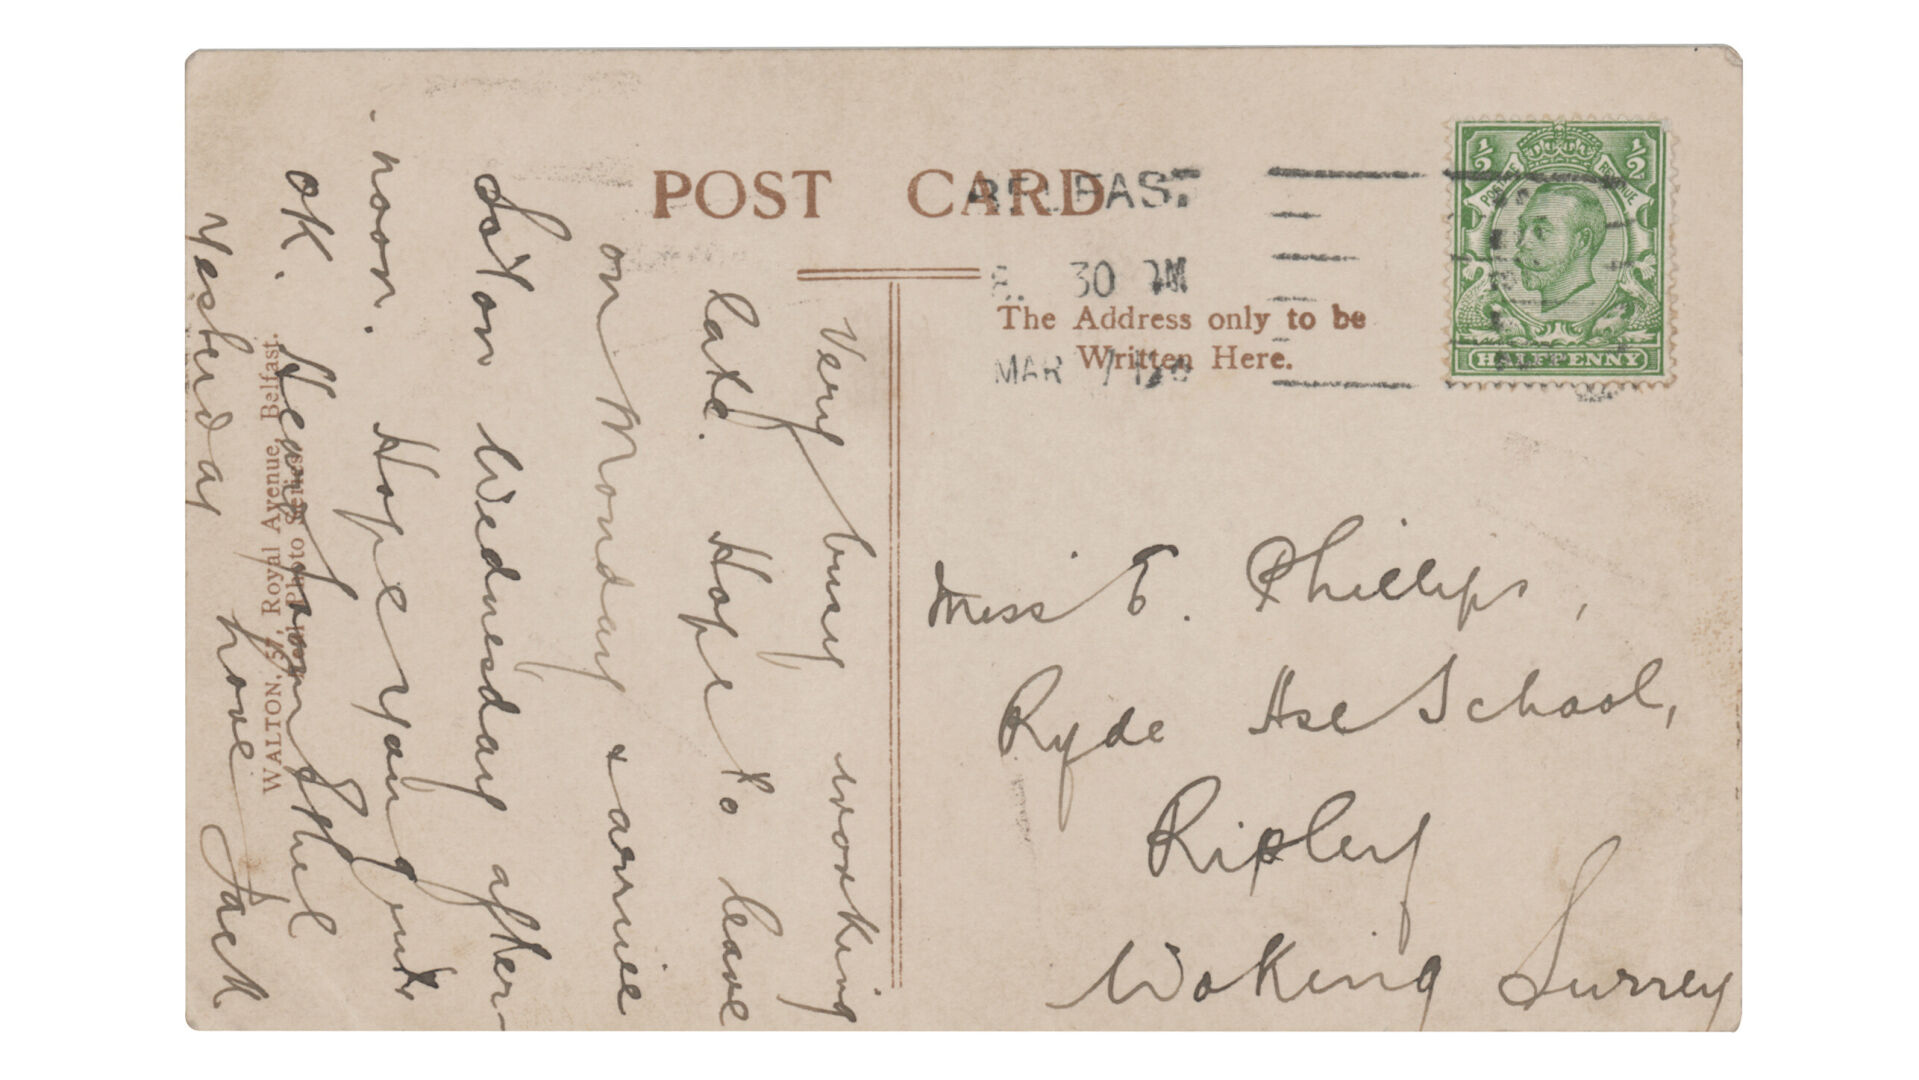 POST CARD
BELFAST
8. 30 PM
MAR 7
½ ½
POSTAGE REVENUE
HALFPENNY
The Address only to be
Written Here.
Very busy working
late. Hope to leave
on Monday & arrive
So'ton Wednesday after-
noon. Hope you quite
OK. Hear from Ethel
Yesterday Love Jack
WALTON, 57, Royal Avenue, Belfast.
Real Photo Series.
Miss E. Phillips,
Ryde Hse School,
Ripley
Woking Surrey